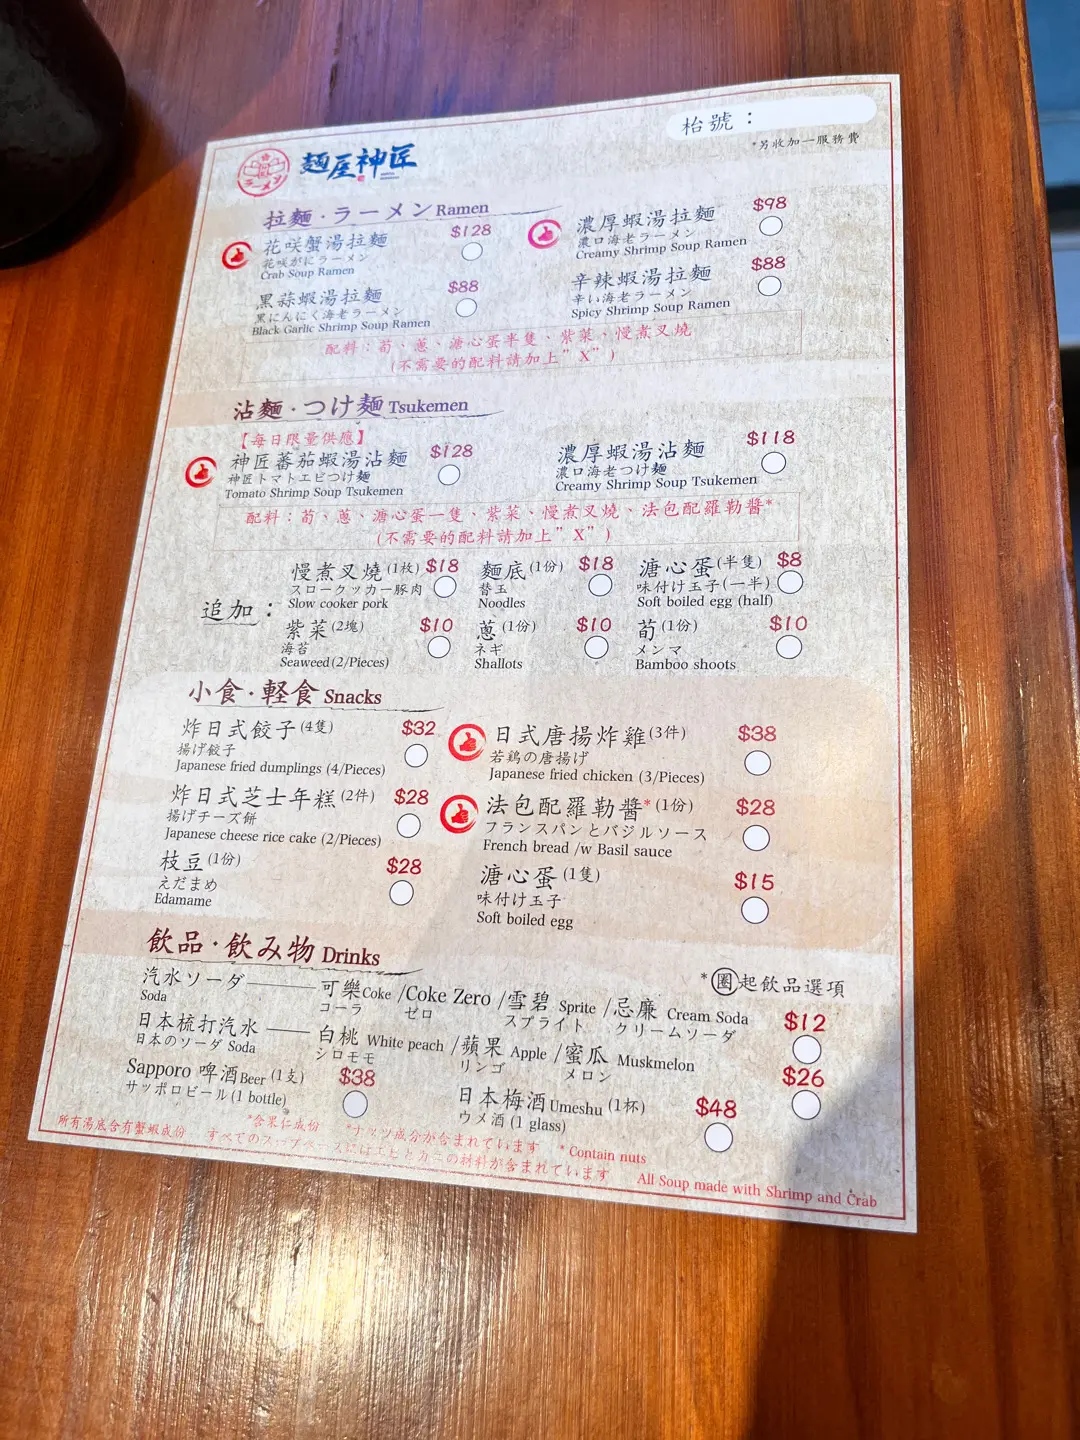 枱號：
*另收加一服務費
ラーメン
麵屋神匠
拉麵·ラーメン Ramen
花咲蟹湯拉麵 $128
花咲がにラーメン
Crab Soup Ramen
濃厚蝦湯拉麵 $98
濃口海老ラーメン
Creamy Shrimp Soup Ramen
黑蒜蝦湯拉麵 $88
黒にんにく海老ラーメン
Black Garlic Shrimp Soup Ramen
辛辣蝦湯拉麵 $88
辛い海老ラーメン
Spicy Shrimp Soup Ramen
配料：荀、蔥、溏心蛋半隻、紫菜、慢煮叉燒
(不需要的配料請加上"X")
沾麵·つけ麵 Tsukemen
【每日限量供應】
神匠蕃茄蝦湯沾麵 $128
神匠トマトエビつけ麵
Tomato Shrimp Soup Tsukemen
濃厚蝦湯沾麵 $118
濃口海老つけ麵
Creamy Shrimp Soup Tsukemen
配料：荀、蔥、溏心蛋一隻、紫菜、慢煮叉燒、法包配羅勒醬*
(不需要的配料請加上"X")
追加：
慢煮叉燒(1枚) $18
スロークッカー豚肉
Slow cooker pork
麵底(1份) $18
替玉
Noodles
溏心蛋(半隻) $8
味付け玉子(一半)
Soft boiled egg (half)
紫菜(2塊) $10
海苔
Seaweed(2/Pieces)
蔥(1份) $10
ネギ
Shallots
荀(1份) $10
メンマ
Bamboo shoots
小食·軽食 Snacks
炸日式餃子(4隻) $32
揚げ餃子
Japanese fried dumplings (4/Pieces)
日式唐揚炸雞(3件) $38
若鶏の唐揚げ
Japanese fried chicken (3/Pieces)
炸日式芝士年糕(2件) $28
揚げチーズ餅
Japanese cheese rice cake (2/Pieces)
法包配羅勒醬*(1份) $28
フランスパンとバジルソース
French bread /w Basil sauce
枝豆(1份) $28
えだまめ
Edamame
溏心蛋(1隻) $15
味付け玉子
Soft boiled egg
飲品·飲み物 Drinks
*圈起飲品選項
汽水ソーダ
Soda
可樂Coke /Coke Zero /雪碧 Sprite /忌廉 Cream Soda $12
コーラ ゼロ スプライト クリームソーダ
日本梳打汽水
日本のソーダ Soda
白桃 White peach /蘋果 Apple /蜜瓜 Muskmelon $26
シロモモ リンゴ メロン
Sapporo 啤酒Beer (1支) $38
サッポロビール(1 bottle)
日本梅酒Umeshu (1杯) $48
ウメ酒 (1 glass)
*含果仁成份 *ナッツ成分が含まれています *Contain nuts
所有湯底含有蟹蝦成份 すべてのスープベースにはエビとカニの材料が含まれています All Soup made with Shrimp and Crab